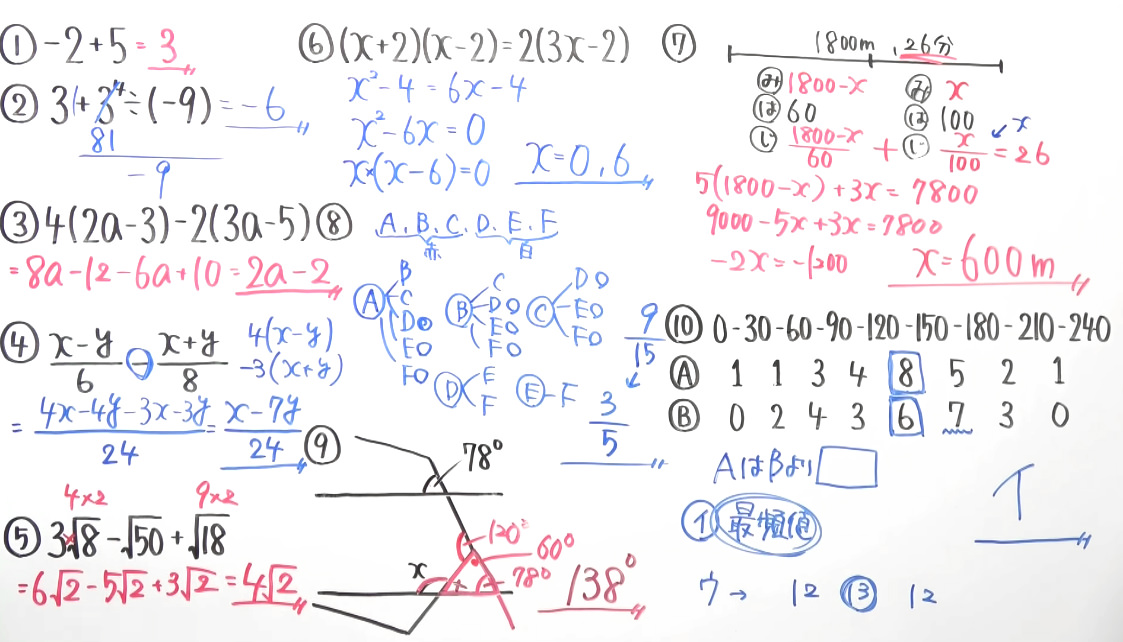 ① -2+5 = 3
② 3 + 3⁴ ÷ (-9) = -6
81
-9
③ 4(2a-3)-2(3a-5)
= 8a-12-6a+10 = 2a-2
④ x-y/6 - x+y/8
4(x-y)
-3(x+y)
= 4x-4y-3x-3y/24 = x-7y/24
4×2 9×2
⑤ 3√8 - √50 + √18
= 6√2 - 5√2 + 3√2 = 4√2
⑥ (x+2)(x-2)=2(3x-2)
x²-4 = 6x-4
x²-6x = 0
x×(x-6)=0
x=0,6
⑦ 1800m, 26分
み 1800-x み x
は 60 は 100
じ 1800-x/60 + じ x/100 = 26
x
5(1800-x)+3x = 7800
9000-5x+3x=7800
-2x=-1200
x=600m
⑧ A, B, C, D, E, F
赤 白
A B C D○ E○ F○
B C D○ E○ F○
C D○ E○ F○
D E F
E-F
9/15
3/5
⑨ 78°
120°
60°
x × 78°
138°
⑩ 0-30-60-90-120-150-180-210-240
A 1 1 3 4 8 5 2 1
B 0 2 4 3 6 7 3 0
AはBより
イ 最頻値
イ
ウ→ 12 13 12